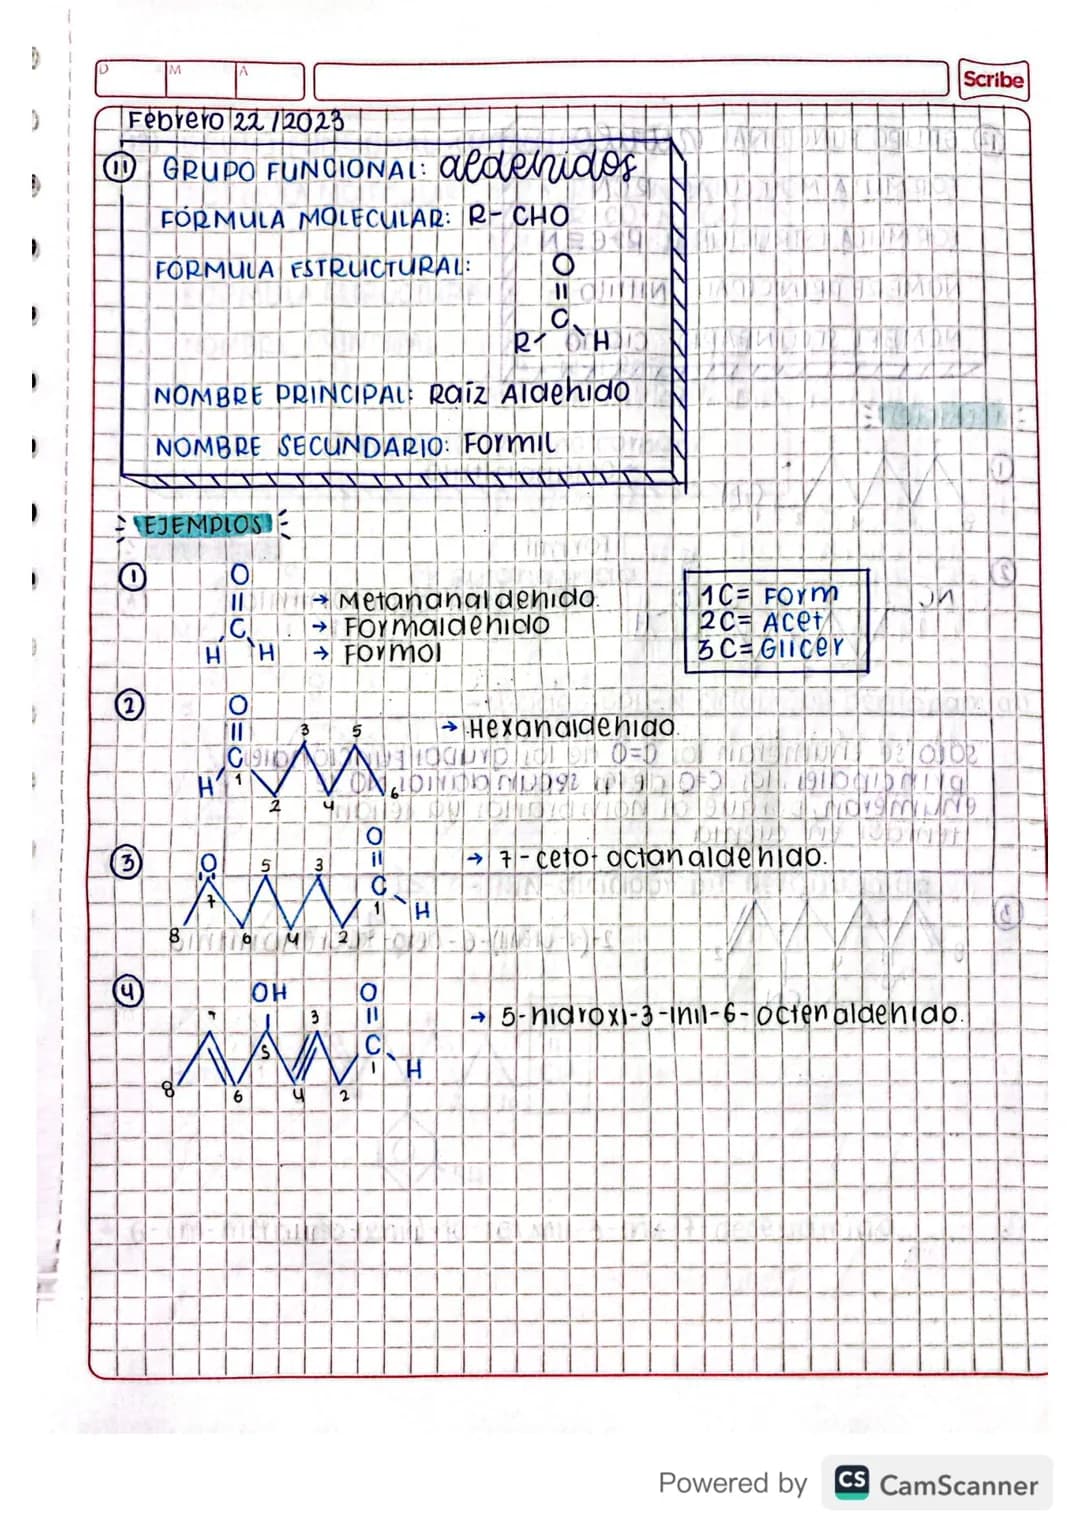 D M A
Scribe
Febrero 22 / 2023
11 GRUPO FUNCIONAL: aldehidos
FÓRMULA MOLECULAR: R- CHO
FÓRMULA ESTRUCTURAL:
O
C
R H
NOMBRE PRINCIPAL: Raíz Aldehido
NOMBRE SECUNDARIO: Formil
EJEMPLOS
1
O
C
H H
→ Metananaldehido.
→ Formaldehido
→ Formol
1C= Form
2C= Acet
3C= Glicer
2
O
C
H 1 2 3 4 5 6
→ Hexanaldehido.
3
O
O
C
H
8 7 6 5 4 3 2 1
→ 7-ceto-octanaldehido.
4
OH O
C
H
8 7 6 5 4 3 2 1
→ 5-hidroxi-3-inil-6-octenaldehido.
Powered by CS CamScanner